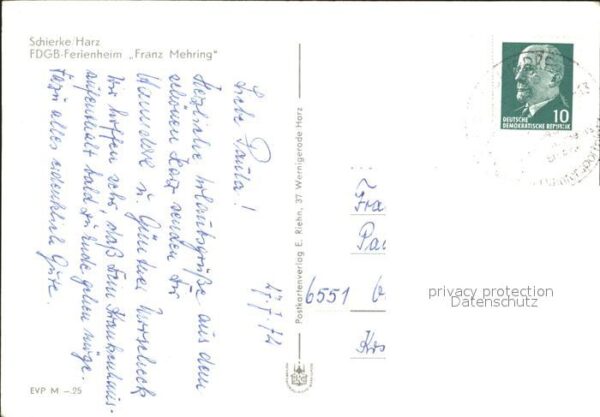 Schierke/Harz
FDGB-Ferienheim „Franz Mehring"
Liebe Paula!
17.7.72
Herzliche Urlaubsgrüße aus dem
schönen Harz senden Dir
Hannelore u. Günther
Wir hoffen sehr, daß Dein Krankenhaus-
aufenthalt bald zu Ende gehen möge.
Dazu alles erdenklich Gute.
EVP M –.25
Postkartenverlag E. Riehn, 37 Wernigerode Harz
Fra
Pau
6551 G
Krs
DEUTSCHE
DEMOKRATISCHE REPUBLIK
10
privacy protection
Datenschutz